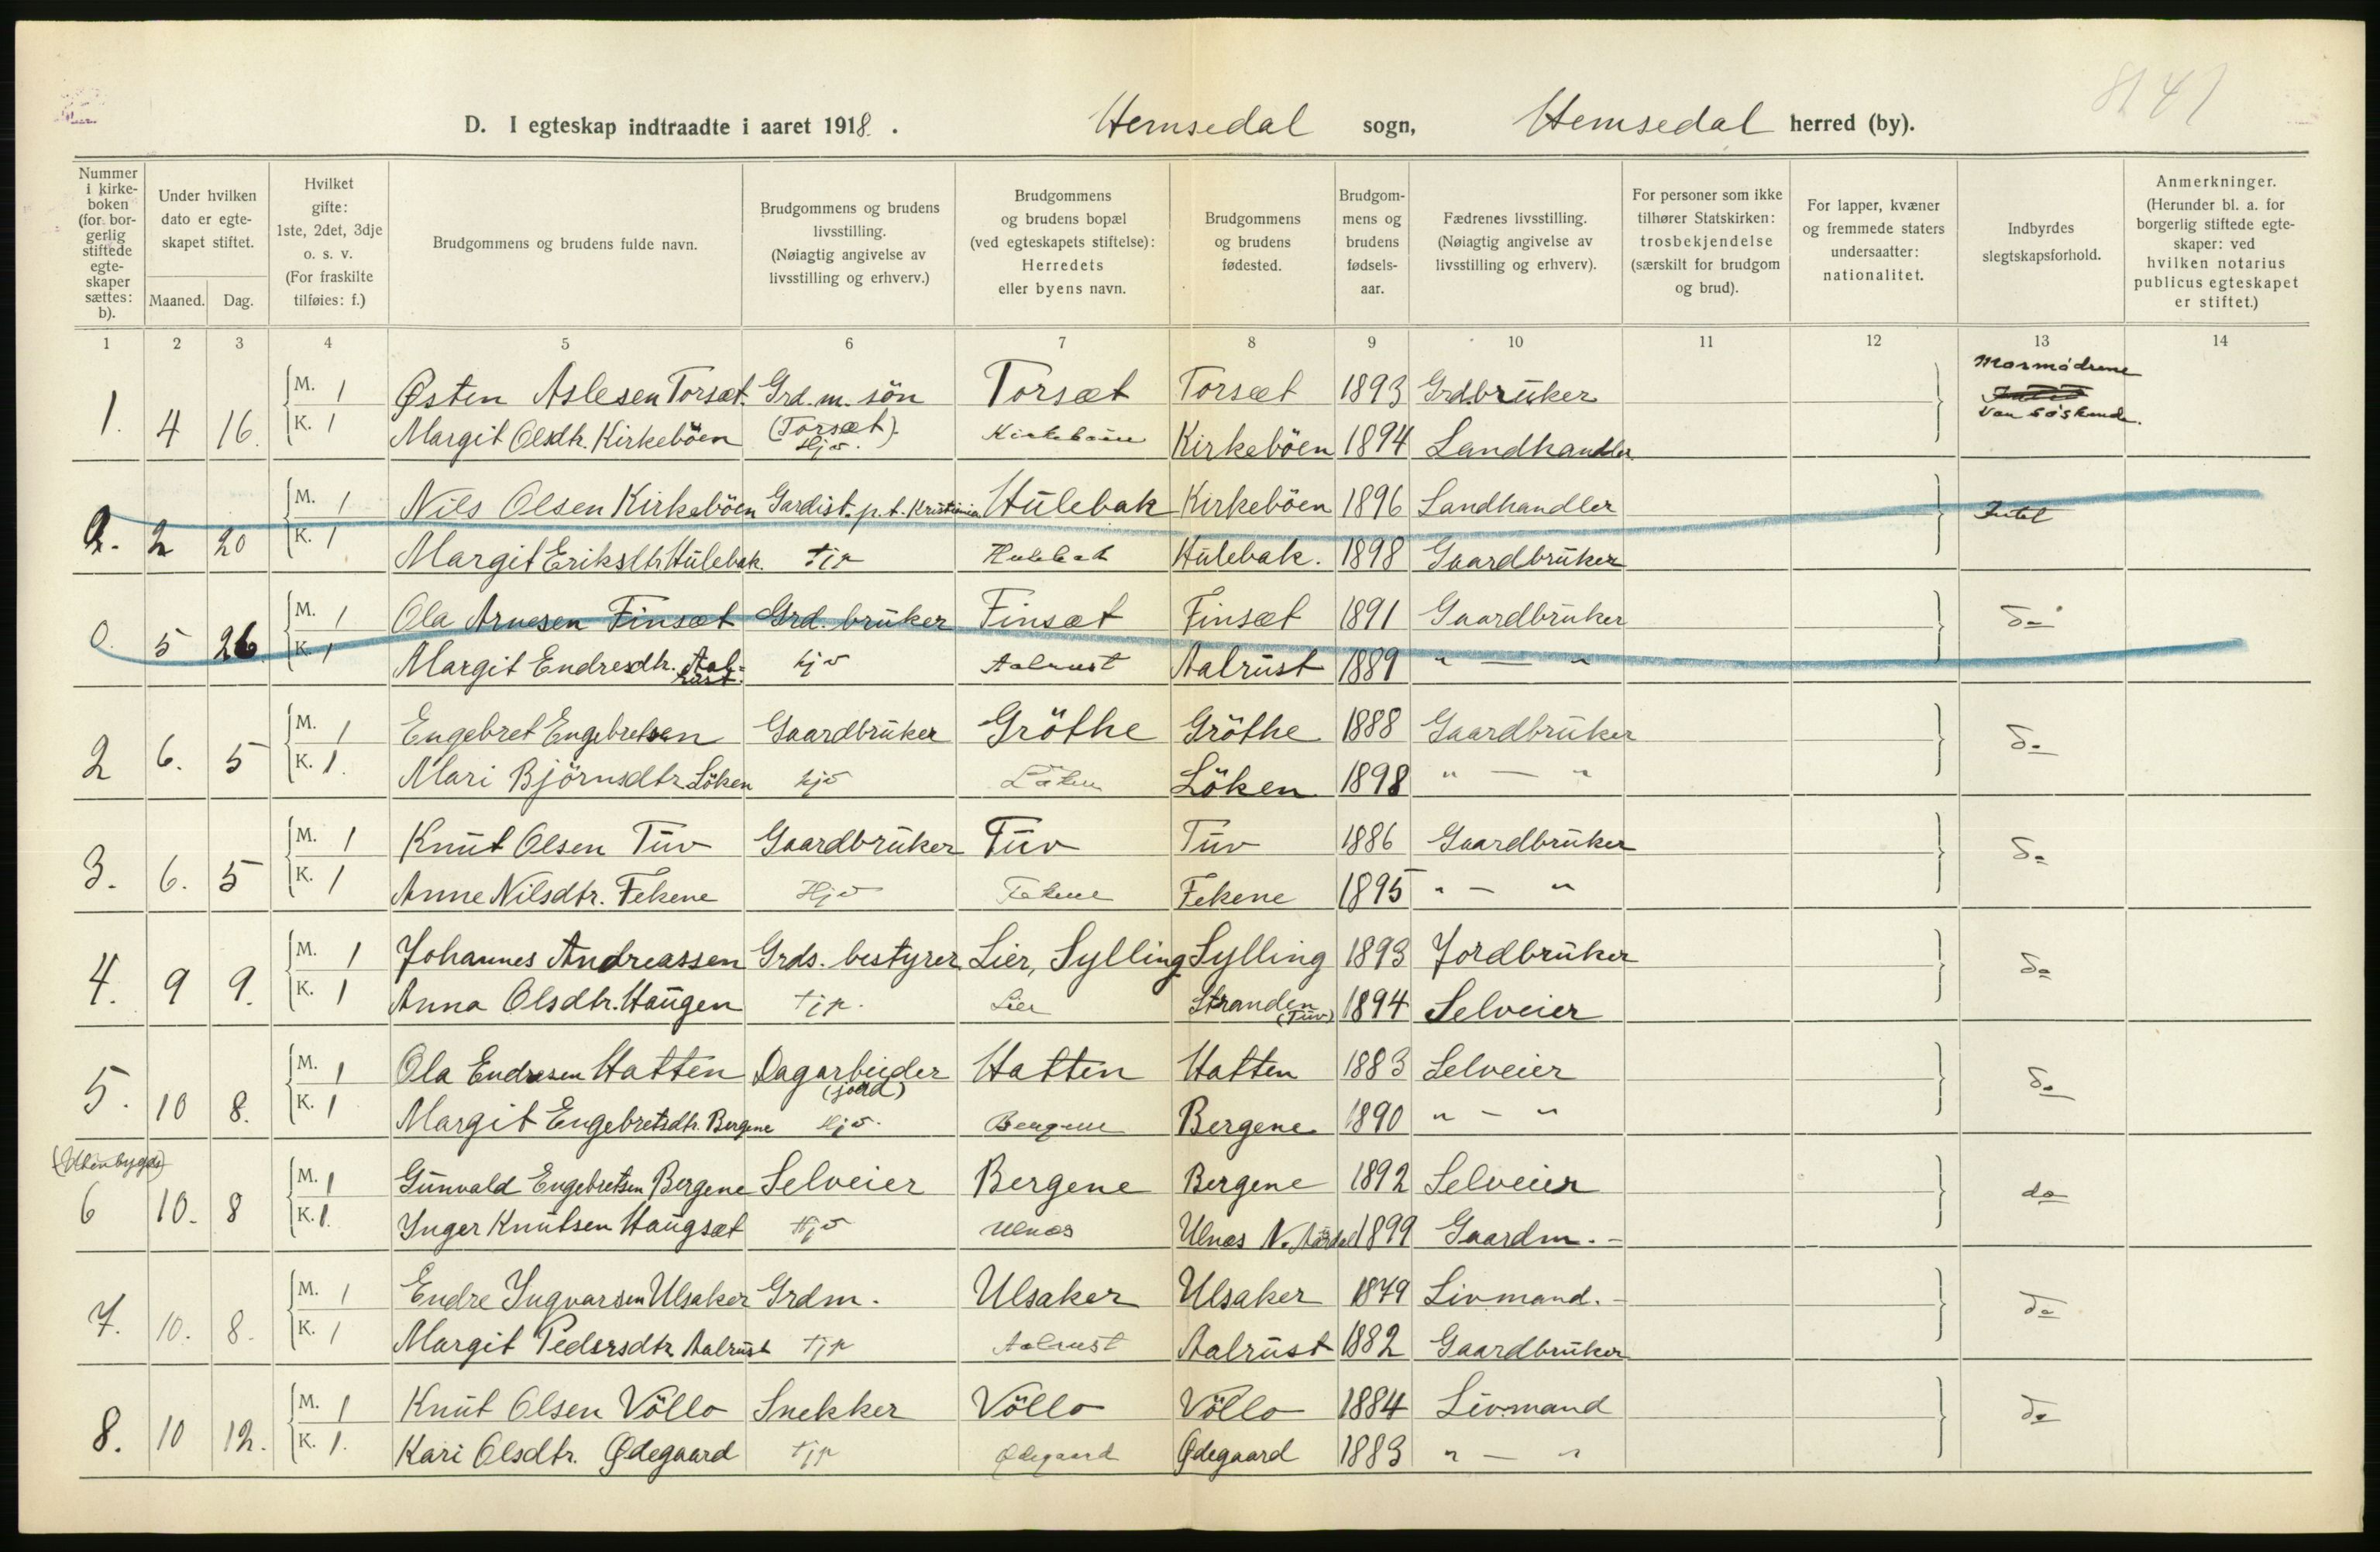 D. I egteskap indtraadte i aaret 1918. Hemsedal sogn, Hemsedal herred (by).
Nummer i kirke-boken (for bor-gerlig stiftede egte-skaper sættes: b).
Under hvilken dato er egte-skapet stiftet.
Maaned. Dag.
Hvilket gifte: 1ste, 2det, 3dje o. s. v. (For fraskilte tilføies: f.)
Brudgommens og brudens fulde navn.
Brudgommens og brudens livsstilling. (Nøiagtig angivelse av livsstilling og erhverv.)
Brudgommens og brudens bopæl (ved egteskapets stiftelse): Herredets eller byens navn.
Brudgommens og brudens fødested.
Brudgom-mens og brudens fødsels-aar.
Fædrenes livsstilling. (Nøiagtig angivelse av livsstilling og erhverv).
For personer som ikke tilhører Statskirken: trosbekjendelse (særskilt for brudgom og brud).
For lapper, kvæner og fremmede staters undersaatter: nationalitet.
Indbyrdes slegtskapsforhold.
Anmerkninger. (Herunder bl. a. for borgerlig stiftede egte-skaper: ved hvilken notarius publicus egteskapet er stiftet.)
1 2 3 4 5 6 7 8 9 10 11 12 13 14
1. 4 16. M. 1 Østen Aslesen Torsæt. Grd. m. sön (Torsæt). Torsæt Torsæt 1893 Grdbrüker Mormødrene
K. 1 Margit Olsdtr. Kirkeböen Hjv. Kirkeböen Kirkeböen 1894 Landhandler var søskende.
2. 2 20 M. 1 Nils Olsen Kirkeböen Gardist. p.t. Kristiania Hülebak Kirkeböen 1896 Landhandler Intet
K. 1 Margit Eriksdtr Hülebak. tjp Hulebak Hülebak. 1898 Gaardbrüker
0. 5 26. M. 1 Ola Arnesen Finsæt Grd. brüker Finsæt Finsæt 1891 Gaardbrüker do
K. 1 Margit Endresdtr. Aal-rüst. hjv Aalrust Aalrüst 1889 " — "
2 6. 5 M. 1 Engebret Engebretsen Gaardbrüker Gröthe Gröthe 1888 Gaardbrüker do
K. 1. Mari Björnsdtr Löken hjv Löken Löken 1898 " — "
3. 6. 5 M. 1 Knüt Olsen Tüv Gaardbrüker Tüv Tüv 1886 Gaardbrüker do
K. 1 Anne Nilsdtr. Fekene Hjv Fekene Fekene 1895 " — "
4. 9 9. M. 1 Johannes Andreassen Grds. bestyrer Lier, Sylling Sylling 1893 Jordbrüker do
K. 1 Anna Olsdtr. Haügen tjp. Lier Stranden (Tüv) 1894 Selveier
5. 10 8. M. 1 Ola Endresen Hatten Dagarbeider (jord) Hatten Hatten 1883 Selveier do
K. 1 Margit Engebretsdtr. Bergene Hjv. Bergene Bergene 1890 " — "
(Utenbygds)
6 10. 8 M. 1 Günvald Engebretsen Bergene Selveier Bergene Bergene 1892 Selveier do
K. 1. Inger Knütsen Haügsæt Hjv Ulnæs Ulnæs N. Aürdal 1899 Gaardm. -
7. 10. 8. M. 1 Endre Ingvarsen Ulsaker Grdm. Ulsaker Ulsaker 1879 Livmand. - do
K. 1 Margit Pedersdtr Aalrüst tjp Aalrust Aalrüst 1882 Gaardbrüker
8. 10 12. M. 1 Knüt Olsen Völlo Snekker Völlo Völlo 1884 Livmand do
K. 1. Kari Olsdtr. Ødegaard tjp Ødegaard Ødegaard 1883 " — "